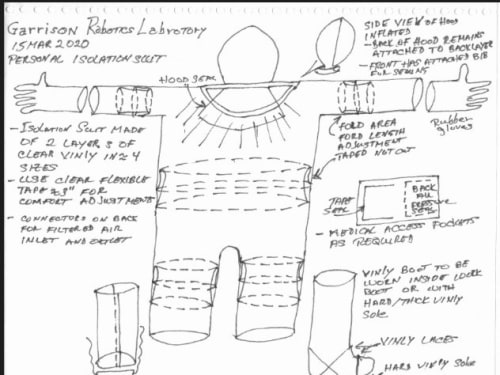 Garrison Robotics Labrotory
15 MAR 2020
PERSONAL ISOLATION SUIT
SIDE VIEW OF HOOD
INFLATED
- BACK OF HOOD REMAINS
ATTACHED TO BACKLAYER
- FRONT HAS ATTACHED BIB
FOR SEALING
HOOD SEAL
- ISOLATION SUIT MADE
OF 2 LAYERS OF
CLEAR VINLY IN 4
SIZES
- USE CLEAR FLEXIBLE
TAPE 3" FOR
COMFORT ADJUSTMENTS
- CONNECTORS ON BACK
FOR FILTERED AIR
INLET AND OUTLET
FOLD AREA
FORD LENGTH
ADJUSTMENT
TAPED NOT CUT
Rubber
gloves
TAPE
SEAL
BACK
AIR
PRESSURE
SEAL
- MEDICAL ACCESS POCKETS
AS REQUIRED
VINLY BOOT TO BE
WORN INSIDE WORK
BOOT OR WITH
HARD/THICK VINLY
Sole
VINLY LACES
HARD VINLY Sole